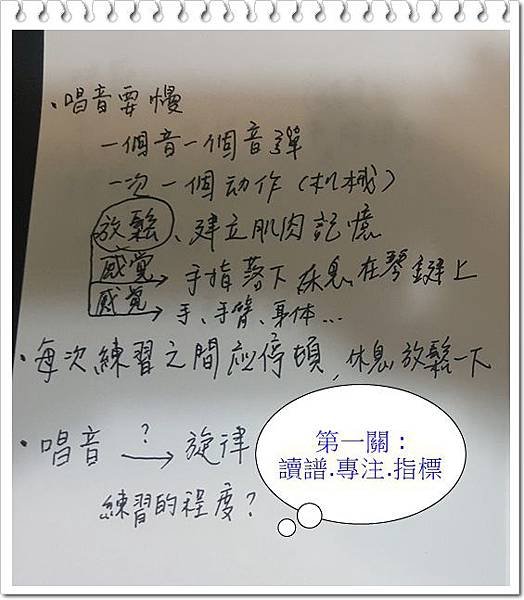 ·唱音要慢
一個音一個音彈
一次一個动作(机械)
放鬆、建立肌肉記憶
感覚 手指落下休息在琴鍵上
感覚 手、手臂、身体...
·每次練習之間应停頓,休息放鬆一下
·唱音 ?→ 旋律
練習的程度?
第一關：
讀譜.專注.指標